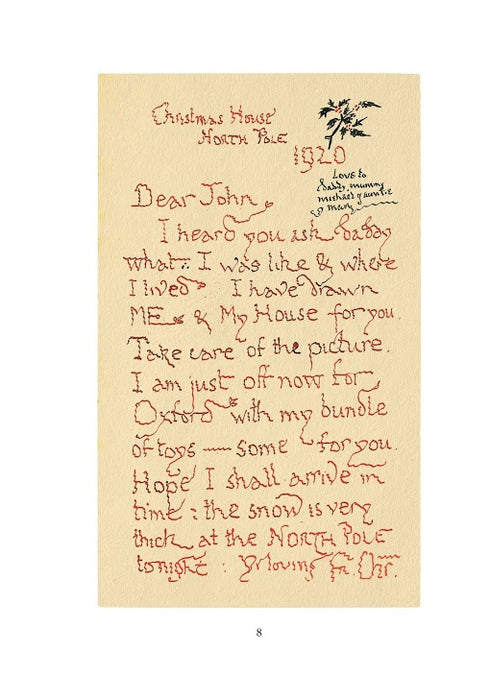 Christmas House
North Pole
1920
Love to
daddy, mummy
michael & auntie
mary
Dear John
I heard you ask daddy
what I was like & where
I lived. I have drawn
ME & My House for you.
Take care of the picture.
I am just off now for
Oxford with my bundle
of toys — some for you.
Hope I shall arrive in
time: the snow is very
thick at the NORTH POLE
tonight. Yr loving Fr. Chr.
8